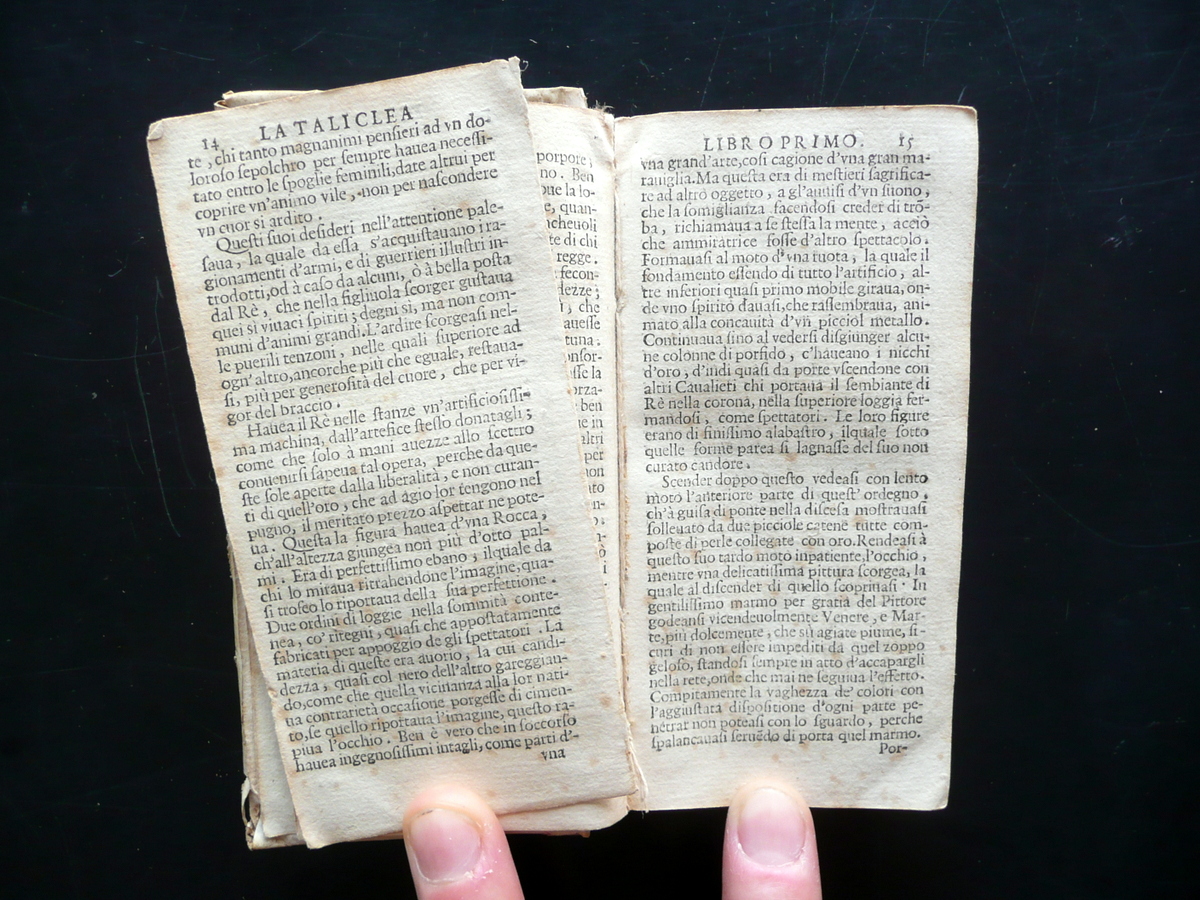 14 LA TALICLEA
te , chi tanto magnanimi pensieri ad vn do-
loroso sepolchro per sempre hauea necessi-
tato entro le spoglie feminili,date altrui per
coprire vn'animo vile , non per nascondere
vn cuor sì ardito .
Questi suoi desideri nell'attentione pale-
saua , la quale da essa s'acquistauano i ra-
gionamenti d'armi, e di guerrieri illustri in-
trodotti,od à caso da alcuni, ò à bella posta
dal Rè , che nella figliuola scorger gustaua
quei sì viuaci spiriti ; degni sì, ma non com-
muni d'animi grandi.L'ardire scorgeasi nel-
le puerili tenzoni , nelle quali superiore ad
ogn'altro,ancorche più che eguale, restaua-
si, più per generosità del cuore , che per vi-
gor del braccio .
Hauea il Rè nelle stanze vn'artificiosissi-
ma machina, dall'artefice stesso donatagli ;
come che solo à mani auezze allo scettro
conuenirsi sapeua tal opera, perche da que-
ste sole aperte dalla liberalità , e non curan-
ti di quell'oro , che ad agio lor tengono nel
pugno, il meritato prezzo aspettar ne pote-
ua . Questa la figura hauea d'vna Rocca ,
ch'all'altezza giungea non più d'otto pal-
mi . Era di perfettissimo ebano , ilquale da
chi lo miraua ritrahendone l'imagine, qua-
si trofeo lo riportaua della sua perfettione .
Due ordini di loggie nella sommità conte-
nea, co' ritegni, quasi che appostatamente
fabricati per appoggio de gli spettatori . La
materia di queste era auorio , la cui candi-
dezza , quasi col nero dell'altro gareggian-
do,come che quella vicinanza alla lor nati-
ua contrarietà occasione porgesse di cimen-
to,se quello riportaua l'imagine, questo ra-
piua l'occhio . Ben è vero che in soccorso
hauea ingegnosissimi intagli, come parti d'-
vna
porpore ;
no . Ben
que la lo-
e, quan-
icheuoli
te di chi
regge .
fecon-
dezze ;
i , che
auesse
tuna .
onfor-
sse la
orza-
ben
ue in
altri
per
non
nto
LIBRO PRIMO. 15
vna grand'arte,così cagione d'vna gran ma-
rauiglia.Ma questa era di mestieri sagrifica-
re ad altro oggetto , a gl'auuisi d'vn suono ,
che la somiglianza facendosi creder di trō-
ba , richiamaua a se stessa la mente , acciò
che ammiratrice fosse d'altro spettacolo .
Formauasi al moto d'vna ruota , la quale il
fondamento essendo di tutto l'artificio , al-
tre inferiori quasi primo mobile giraua, on-
de vno spirito dauasi,che rassembraua, ani-
mato alla concauità d'vn picciol metallo .
Continuaua sino al vedersi disgiunger alcu-
ne colonne di porfido , c'haueano i nicchi
d'oro , d'indi quasi da porte vscendone con
altri Caualieri chi portaua il sembiante di
Rè nella corona, nella superiore loggia fer-
mandosi , come spettatori . Le loro figure
erano di finissimo alabastro , ilquale sotto
quelle forme parea si lagnasse del suo non
curato candore .
Scender doppo questo vedeasi con lento
moto l'anteriore parte di quest'ordegno ,
ch'à guisa di ponte nella discesa mostrauasi
solleuato da due picciole catene tutte com-
poste di perle collegate con oro.Rendeasi à
questo suo tardo moto inpatiente l'occhio ,
mentre vna delicatissima pittura scorgea, la
quale al discender di quello scopriuasi . In
gentilissimo marmo per gratia del Pittore
godeansi vicendeuolmente Venere , e Mar-
te,più dolcemente , che sù agiate piume, si-
curi di non essere impediti da quel zoppo
geloso, standosi sempre in atto d'accapargli
nella rete,onde che mai ne seguiua l'effetto.
Compitamente la vaghezza de' colori con
l'aggiustata dispositione d'ogni parte pe-
netrar non poteasi con lo sguardo , perche
spalancauasi seruēdo di porta quel marmo.
Por-